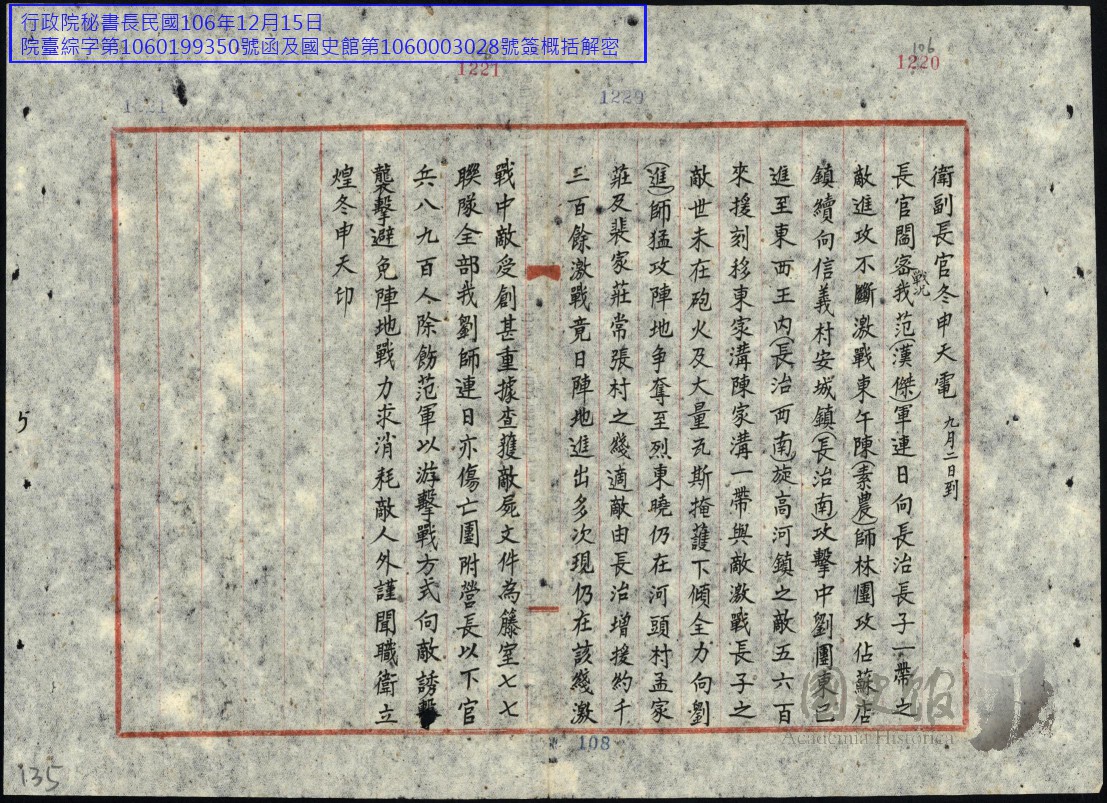 行政院秘書長民國106年12月15日
院臺綜字第1060199350號函及國史館第1060003028號簽概括解密
106
1220
1221
1229
1221
衛副長官冬申天電 九月二日到
長官閻密戰况我范(漢傑)軍連日向長治長子一帶之
敵進攻不斷激戰東午陳(素農)師林團攻佔蘇店
鎮續向信義村安城鎮(長治南)攻擊中劉團東已
進至東西王內(長治西南)旋高河鎮之敵五六百
來援刻移東家溝陳家溝一帶與敵激戰長子之
敵世未在砲火及大量瓦斯掩護下傾全力向劉
(進)師猛攻陣地争奪至烈東曉仍在河頭村孟家
莊及裴家莊常張村之綫適敵由長治增援約千
三百餘激戰竟日陣地進出多次現仍在該綫激
戰中敵受創甚重據查獲敵屍文件為籐室七七
聯隊全部我劉師連日亦傷亡團附營長以下官
兵八九百人除飭范軍以游擊戰方式向敵誘擊
襲擊避免陣地戰力求消耗敵人外謹聞職衛立
煌冬申天印
5
135
108
國史館
Academia Historica